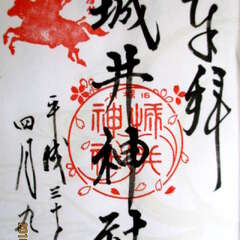 奉拝
城井神社
城井
神社
平成三十
四月九